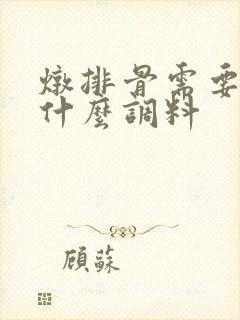 燉排骨需要
什麼調料
顧蘇